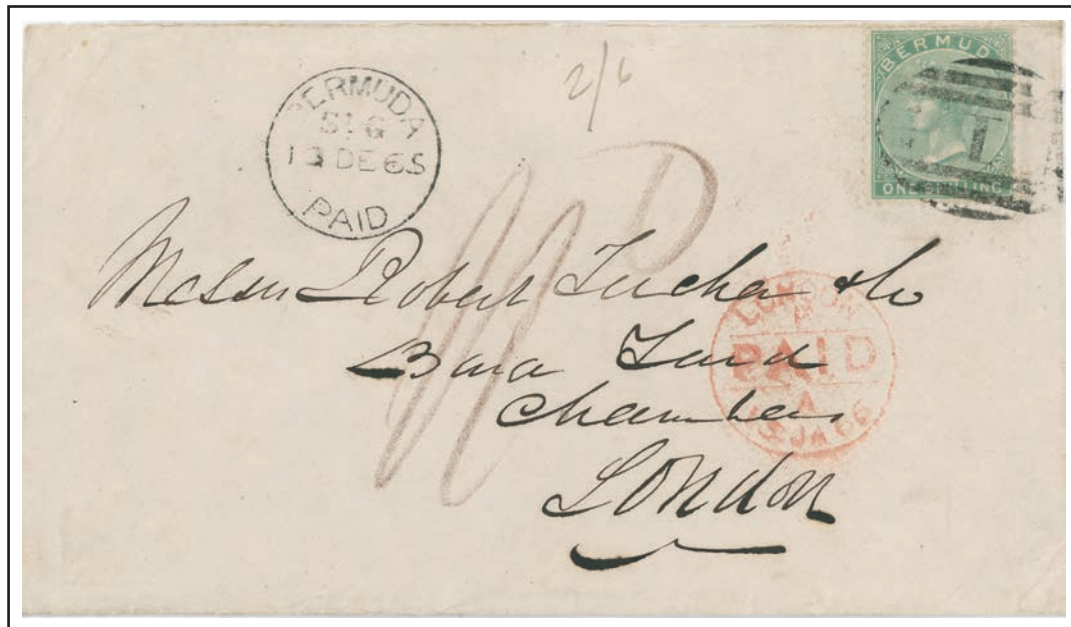 2/6
BERMUDA
ONE SHILLING
1
BERMUDA
St. G
13 DE 65
PAID
D
Messrs Robert Tucker & Co
Bara Yard
Chambers
London
LONDON
PAID
A
JA 66